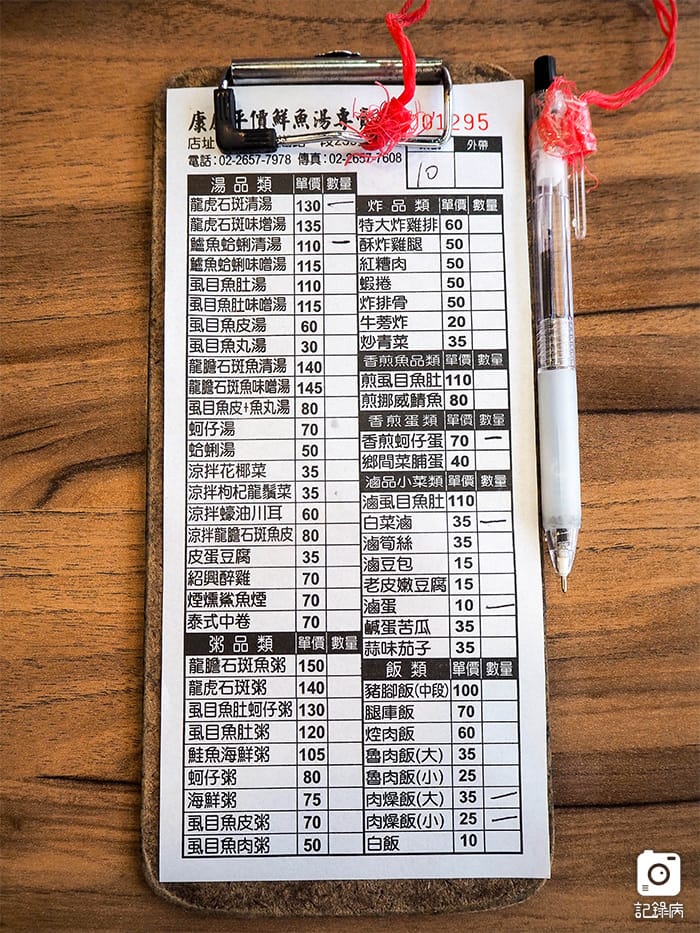 康 平價鮮魚湯專賣 001295
店址
電話:02-2657-7978 傳真:02-2657-7608
外帶
10
湯品類 單價 數量
龍虎石斑清湯 130 一
龍虎石斑味噌湯 135
鱸魚蛤蜊清湯 110 一
鱸魚蛤蜊味噌湯 115
虱目魚肚湯 110
虱目魚肚味噌湯 115
虱目魚皮湯 60
虱目魚丸湯 30
龍膽石斑魚清湯 140
龍膽石斑魚味噌湯 145
虱目魚皮+魚丸湯 80
蚵仔湯 70
蛤蜊湯 50
涼拌花椰菜 35
涼拌枸杞龍鬚菜 35
涼拌蠔油川耳 60
涼拌龍膽石斑魚皮 80
皮蛋豆腐 35
紹興醉雞 70
煙燻鯊魚煙 70
泰式中卷 70
粥品類 單價 數量
龍膽石斑魚粥 150
龍虎石斑粥 140
虱目魚肚蚵仔粥 130
虱目魚肚粥 120
鮭魚海鮮粥 105
蚵仔粥 80
海鮮粥 75
虱目魚皮粥 70
虱目魚肉粥 50
炸品類 單價 數量
特大炸雞排 60
酥炸雞腿 50
紅糟肉 50
蝦捲 50
炸排骨 50
牛蒡炸 20
炒青菜 35
香煎魚品類 單價 數量
煎虱目魚肚 110
煎挪威鯖魚 80
香煎蛋類 單價 數量
香煎蚵仔蛋 70 一
鄉間菜脯蛋 40
滷品小菜類 單價 數量
滷虱目魚肚 110
白菜滷 35 一
滷筍絲 35
滷豆包 15
老皮嫩豆腐 15
滷蛋 10 一
鹹蛋苦瓜 35
蒜味茄子 35
飯類 單價 數量
豬腳飯(中段) 100
腿庫飯 70
焢肉飯 60
魯肉飯(大) 35
魯肉飯(小) 25
肉燥飯(大) 35 一
肉燥飯(小) 25 一
白飯 10
記錄病